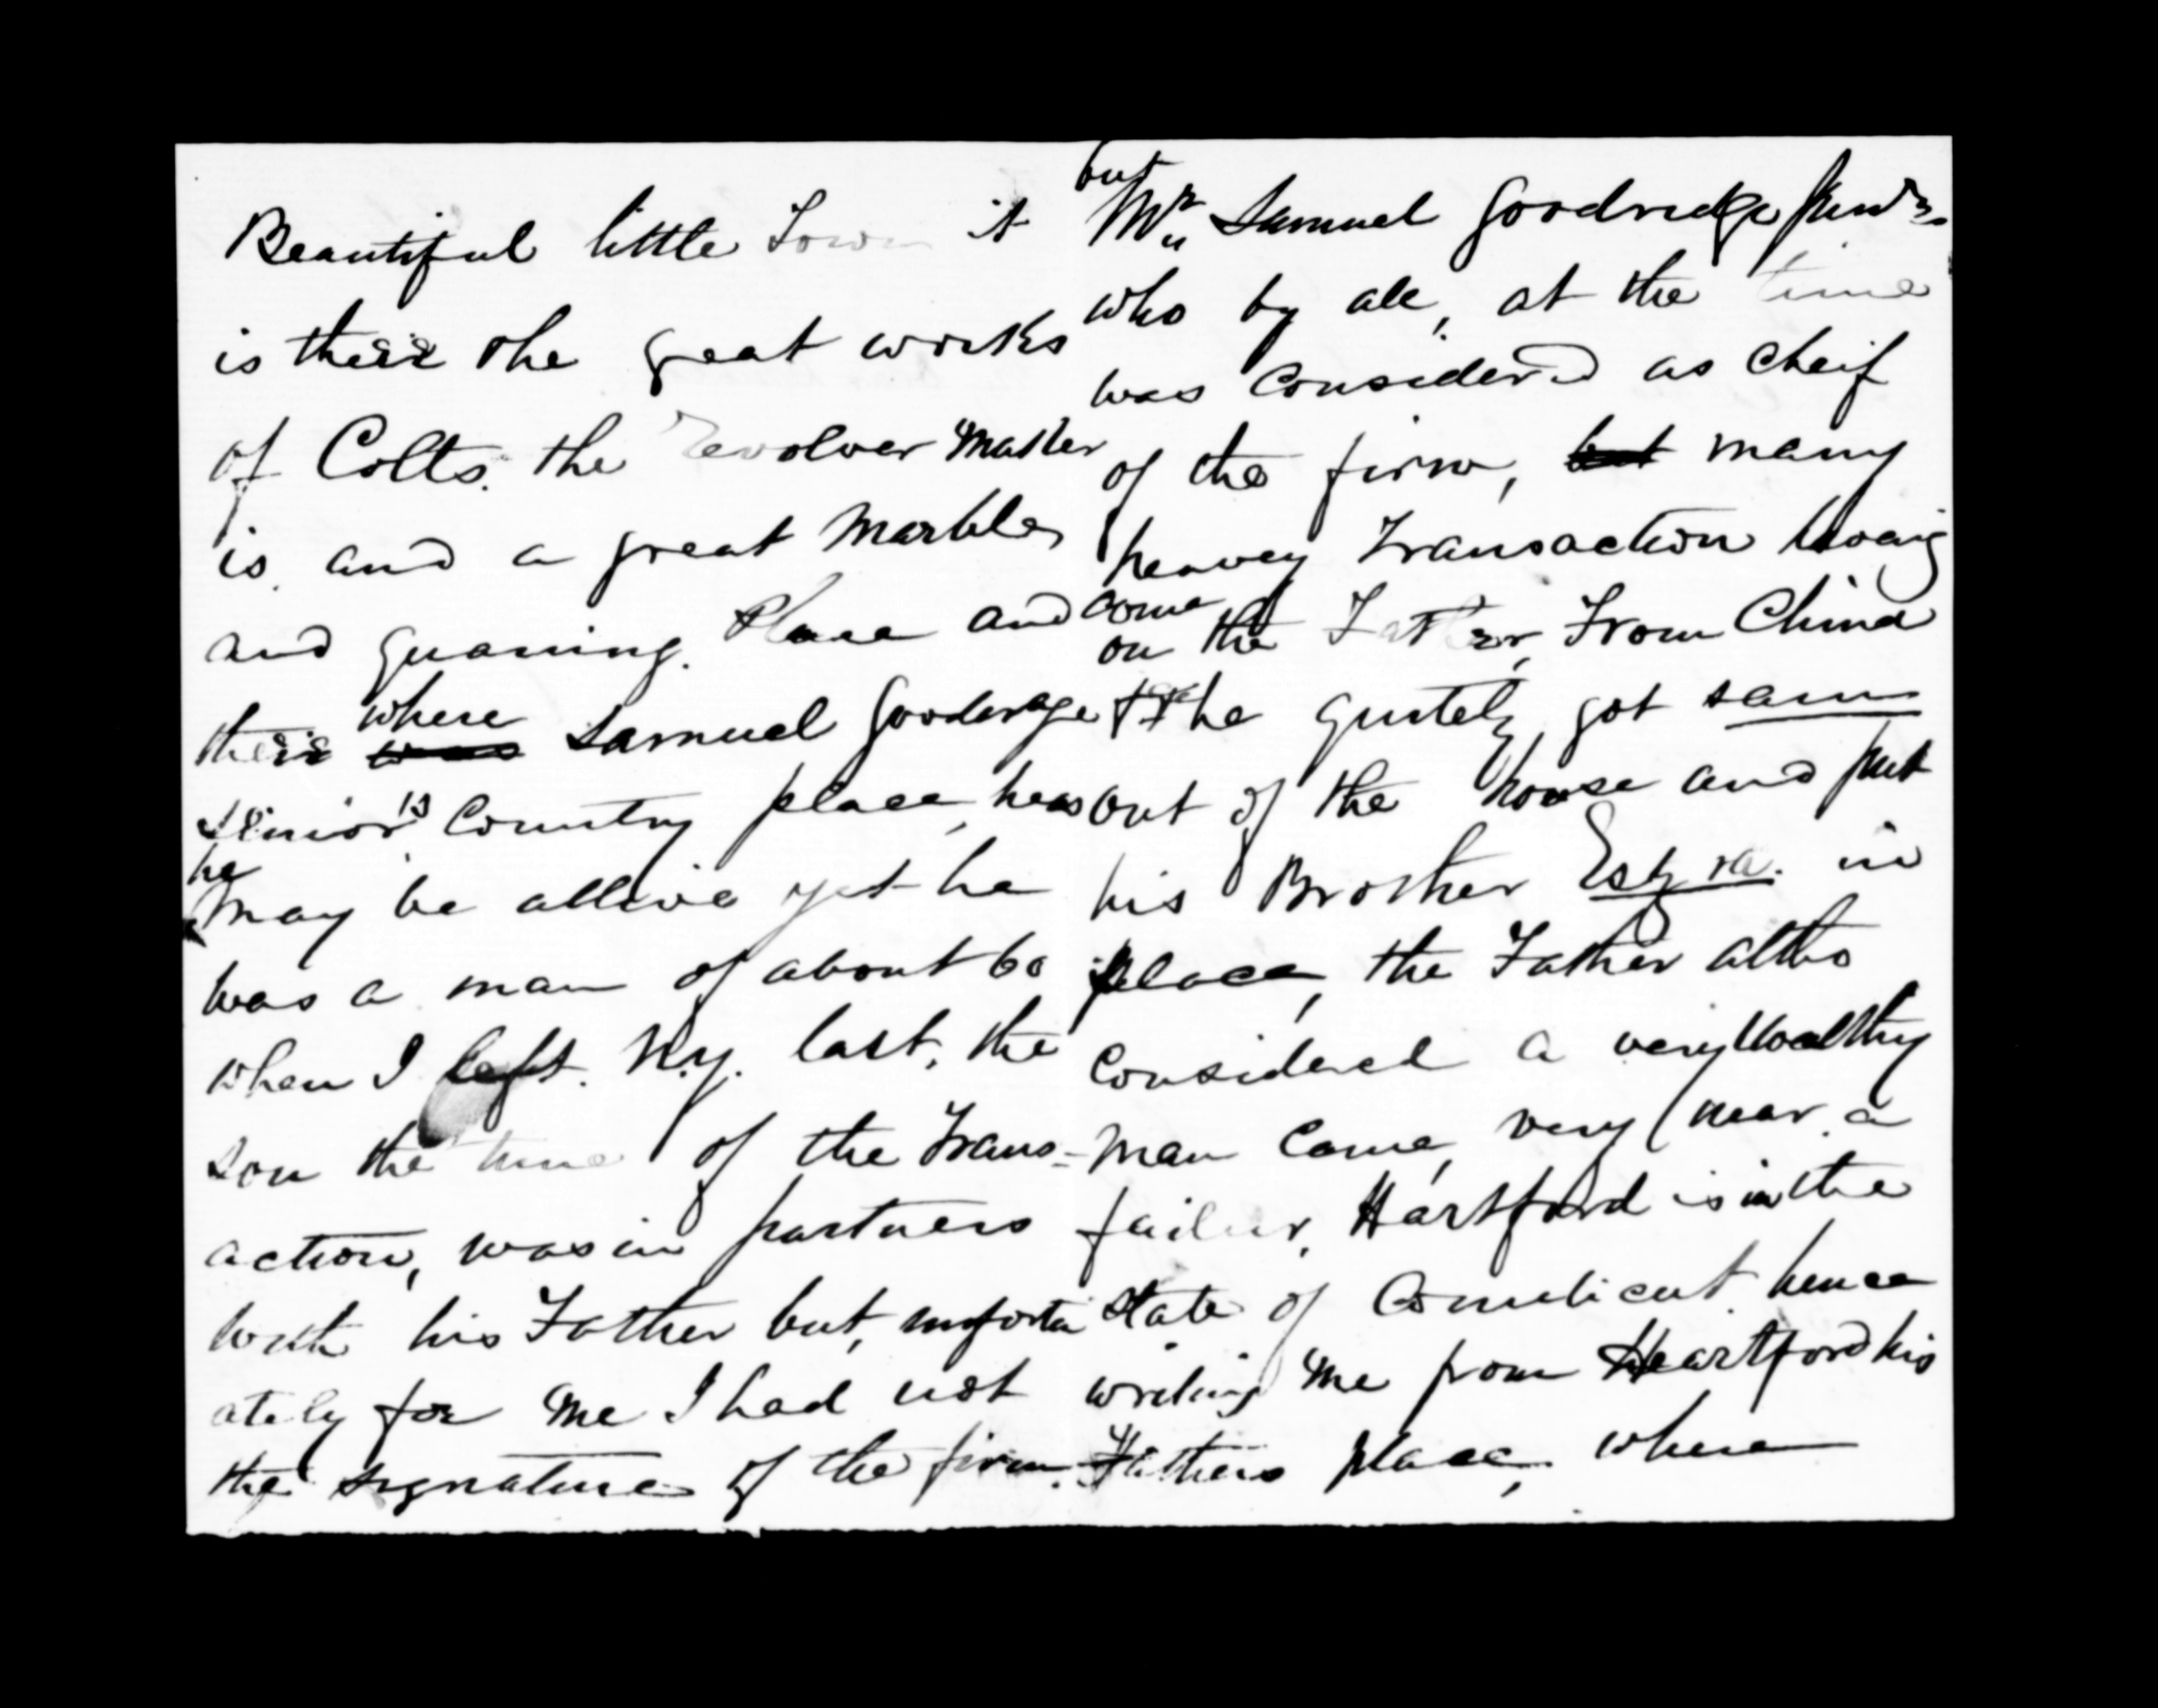 Beautiful little Town it
is theire the great works
of Colts. the revolver Maker
is and a great Marble
and quaning. Place and
theire where Samuel Gooderage
senior's Country place, he
he may be allive yet he
was a man of about 60
when I left. N.Y. last, the
son the time of the Trans-
action, was in partners
with his Father but, unfortu
ately for me I had not
the signature of the firm.
but
Mr. Samuel Goodredge Junr.
who by all, at the time
was Considered as Cheif
of the firm, but many
heavey Transaction having
come
on the Father, From China
the he quitely got sam
out of the house and put
his Brother Esqra. in
place, the Father altho
Considered a very Wealthy
man Came, very near a
failur, Hartford is in the
state of Conneticut hence
writing me from Heartford his
Fathers place, where